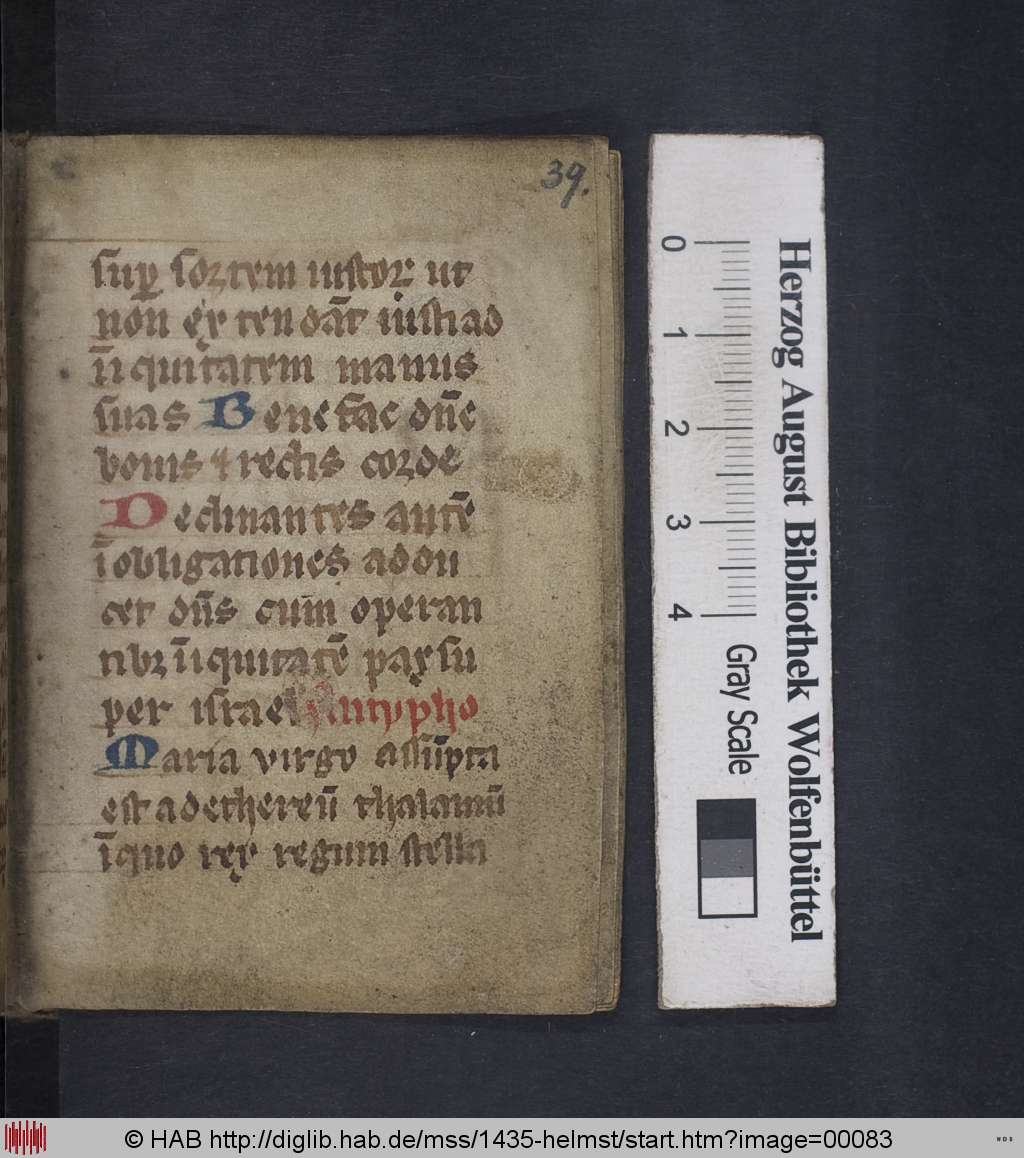 39.
sup̱ sortem iustoꝝ ut
non extendāt iusti ad
īiquitatem manus
suas Bene fac dn̄e
bonis ⁊ rectis corde
Declinantes autē
ī obligationes addu
cet dn̄s cum operan
tibꝫ īiquitatē pax su
per israel Antypho
Maria virgo assūpta
est ad ethereū thalamū
ī quo rex regum stella
0 1 2 3 4
Gray Scale
Herzog August Bibliothek Wolfenbüttel
© HAB http://diglib.hab.de/mss/1435-helmst/start.htm?image=00083